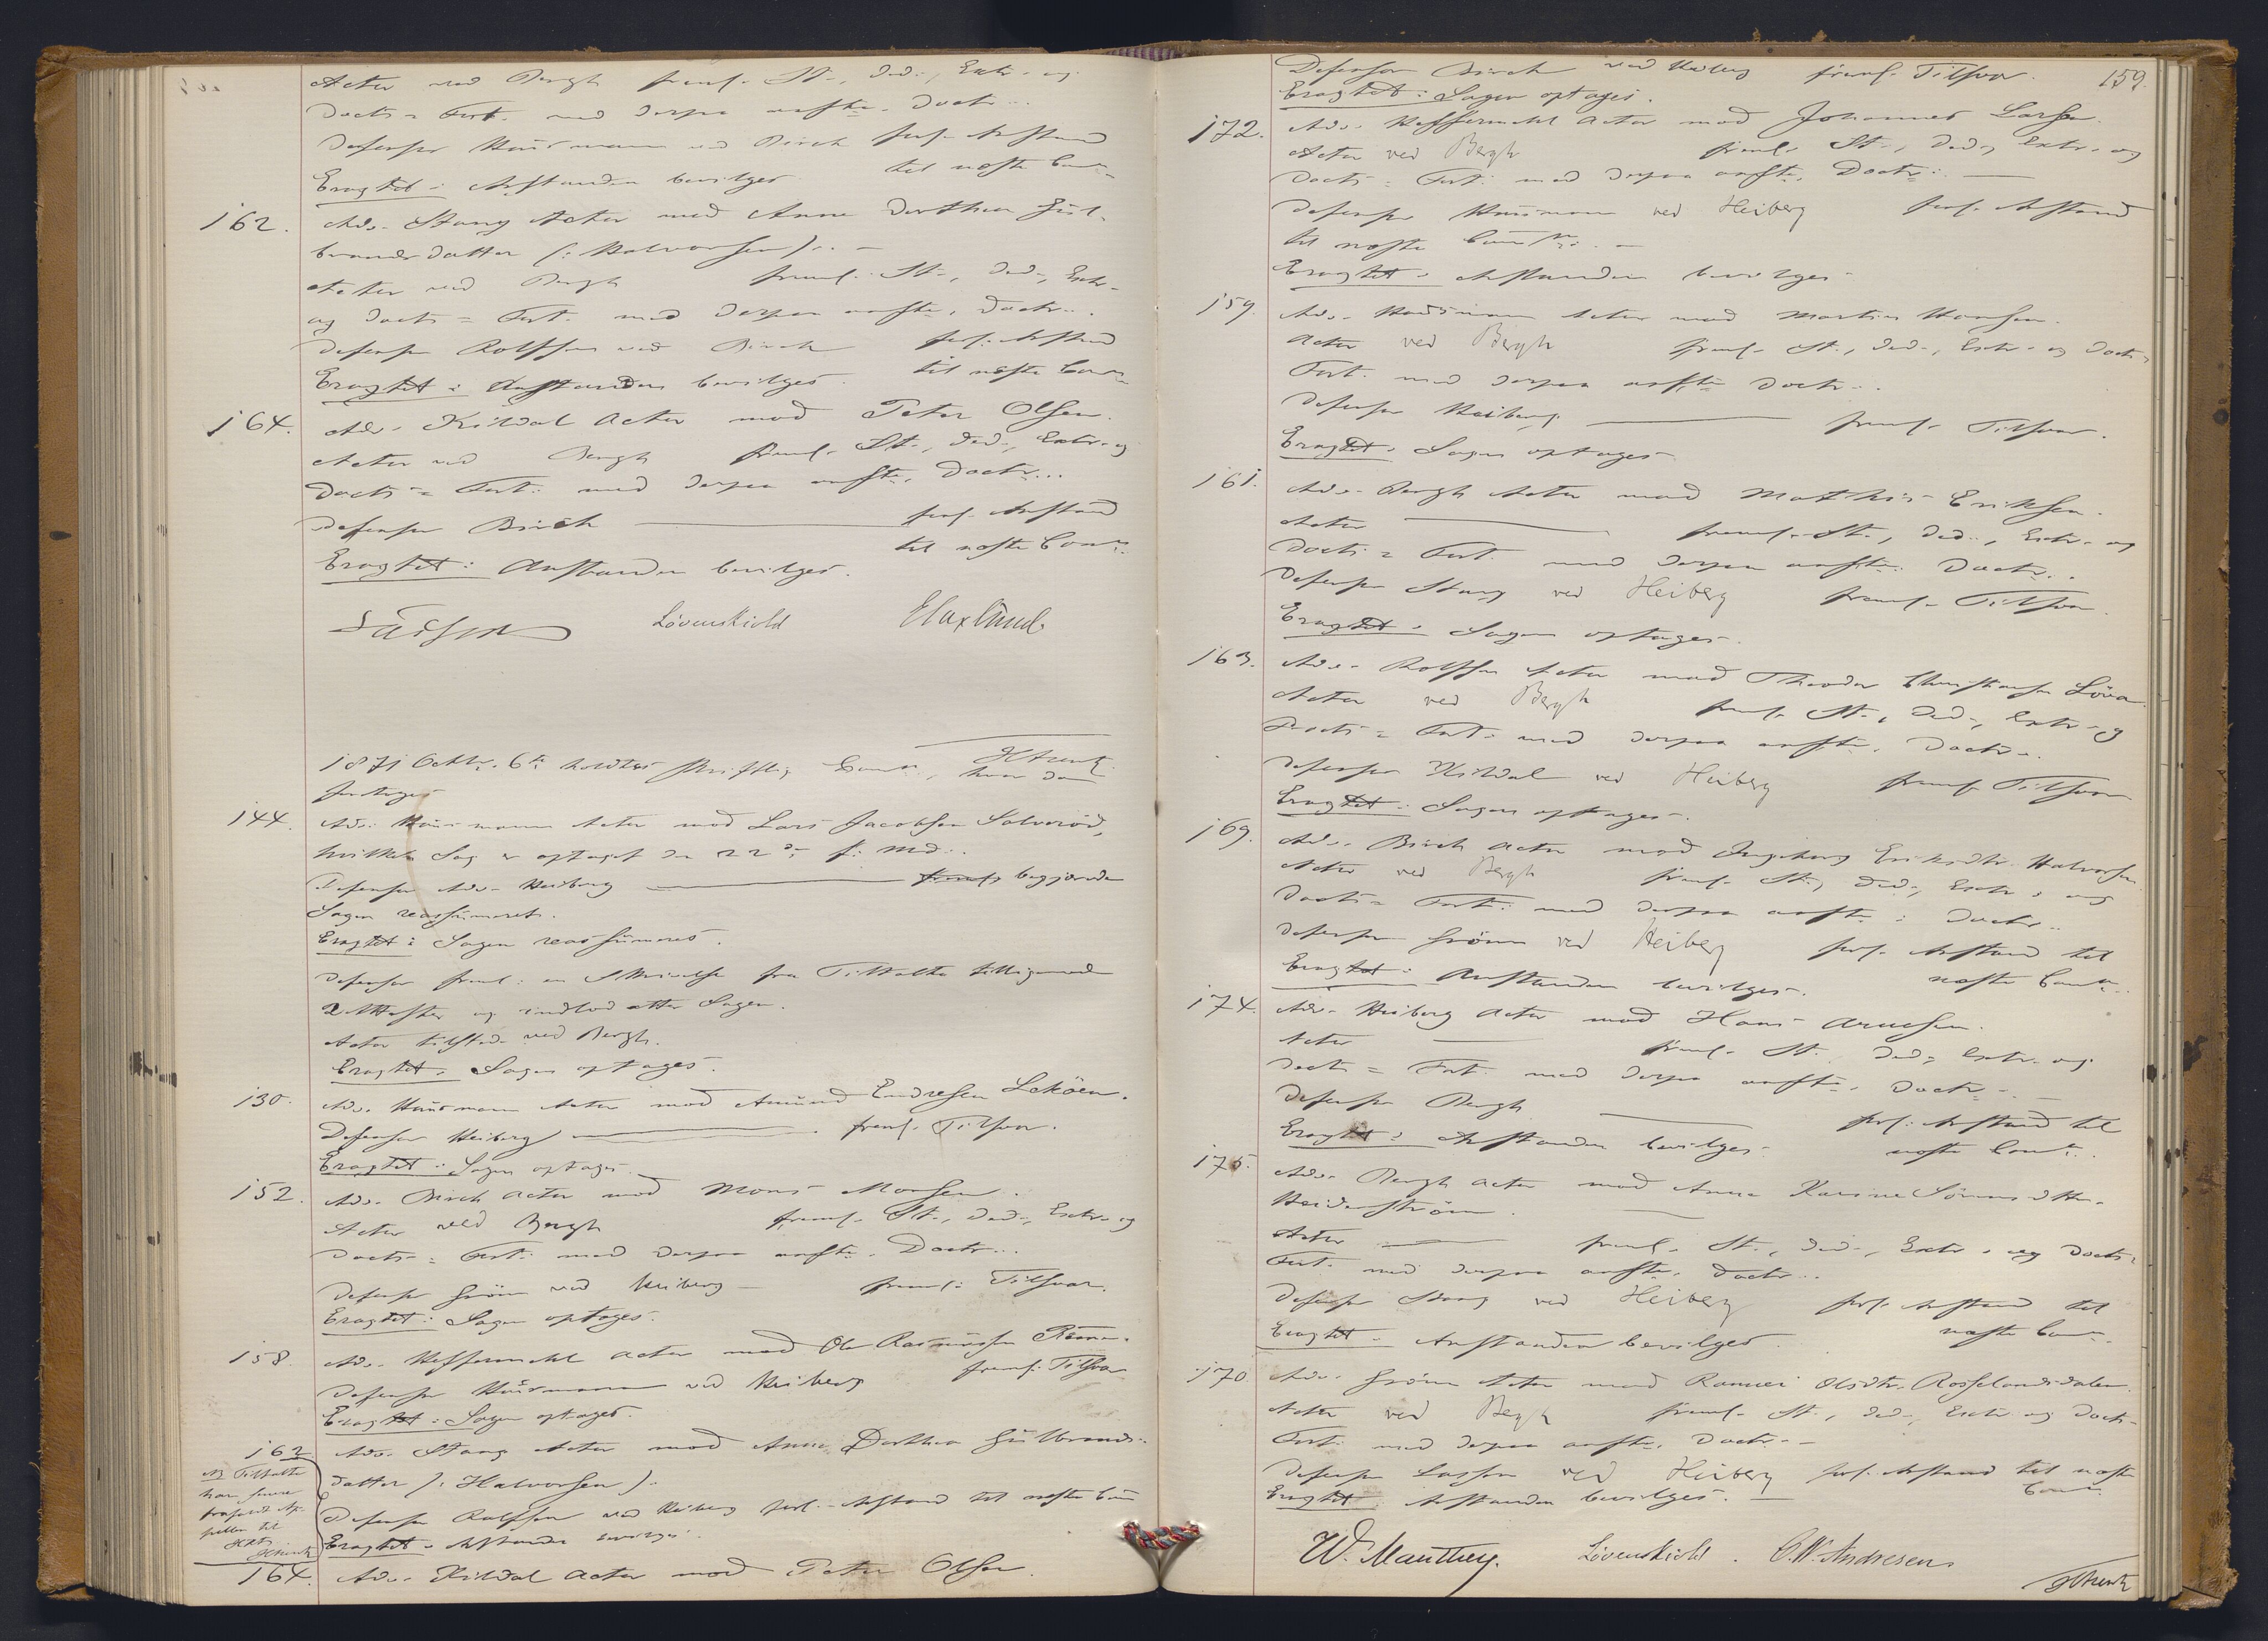 Actor ved Bergh freml. St., Ded., Extr. og
Docts = Fort. med derpaa anfte. Doctr.
Defensor Huusmann ved Birch forl. Anstand
Eragtet: Anstanden bevilges. til næste
162. Adv. Stang Actor mod Anne Dorthea Gul-
brandsdatter (: Halvorsen).
Actor ved Bergh freml. St., Ded., Extr.
og Docts = Fort. med derpaa anfte. Doctr.
Defensor Rolfsen ved Birch forl. Anstand
Eragtet: Anstanden bevilges. til næste
164. Adv. Kildal Actor mod Peter Olsen.
Actor ved Bergh freml. St., Ded., Extr. og
Docts = Fort. med derpaa anfte. Doctr.
Defensor Birch forl. Anstand
til næste
Eragtet: Anstanden bevilges.
Lövenskiold
1871 Octbr. 6te holdtes skriftlig , hvor da
foretoges
144. Adv. Huusmann Actor mod Lars Jacobsen
hvilken Sag er optaget den 22de f. Md.
Defensor Adv. Heiberg freml. begjærede
Sagen reassumeret.
Eragtet: Sagen reassumeres.
Defensor freml. en Skrivelse fra Tiltalte tilligemed
2 Attester og indlod atter Sagen.
Actor tilstede ved Bergh.
Eragtet: Sagen optages.
130. Adv. Huusmann Actor mod Amund Endresen Leköen.
Defensor Heiberg freml. Tilsvar.
Eragtet: Sagen optages.
152. Adv. Birch Actor mod Mons Monsen.
Actor ved Bergh freml. St., Ded., Extr. og
Docts = Fort. med derpaa anfte. Doctr.
Defensor Grönn ved Heiberg freml. Tilsvar.
Eragtet: Sagen optages.
158. Adv. Heffermehl Actor mod Ole Rasmussen
Defensor Huusmann ved Heiberg freml. Tilsvar
Eragtet: Sagen optages.
162 Adv. Stang Actor mod Anne Dorthea Gulbrands-
datter (: Halvorsen).
Defensor Rolfsen ved Heiberg forl. Anstand til næste
Eragtet: Anstanden bevilges.
NB Tiltalte
har senere
frafaldt Ap-
pellen til
164. Adv. Kildal Actor mod Peter Olsen.
159.
Defensor Birch ved Heiberg freml. Tilsvar.
Eragtet: Sagen optages.
172. Adv. Heffermehl Actor mod Johannes Larsen.
Actor ved Bergh freml. St., Ded., Extr. og
Docts = Fort. med derpaa anfte. Doctr.
Defensor Huusmann ved Heiberg forl. Anstand
til næste
Eragtet: Anstanden bevilges.
159. Adv. Huusmann Actor mod Martin Hansen.
Actor ved Bergh freml. St., Ded., Extr. og Docts =
Fort. med derpaa anfte Doctr.
Defensor Heiberg freml. Tilsvar.
Eragtet: Sagen optages
161. Adv. Bergh Actor mod Mathis Eriksen.
Actor freml. St., Ded., Extr. og
Docts = Fort. med derpaa anfte. Doctr.
Defensor Stang ved Heiberg freml. Tilsvar.
Eragtet: Sagen optages.
163. Adv. Rolfsen Actor mod Theodor Christiansen
Actor ved Bergh freml. St., Ded., Extr. og
Docts = Fort. med derpaa anfte. Doctr.
Defensor Kildal ved Heiberg freml. Tilsvar
Eragtet: Sagen optages.
169. Adv. Birch Actor mod Ingeborg Eriksdtr. Halvorsen.
Actor ved Bergh freml. St., Ded., Extr. og
Docts = Fort. med derpaa anfte. Doctr.
Defensor Grönn ved Heiberg forl. Anstand til
Eragtet: Anstanden bevilges. næste
174. Adv. Heiberg Actor mod Hans Arnesen.
Actor freml. St., Ded., Extr. og
Docts = Fort. med derpaa anfte. Doctr.
Defensor Bergh forl. Anstand til
Eragtet: Anstanden bevilges. næste
175. Adv. Bergh Actor mod Anna Karine
Actor freml. St., Ded., Extr. og Docts =
Fort. med derpaa anfte. Doctr.
Defensor Stang ved Heiberg forl. Anstand til
Eragtet: Anstanden bevilges. næste
170. Adv. Grönn Actor mod Olsdtr. Rosselandsdalen.
Actor ved Bergh freml. St., Ded., Extr. og Docts =
Fort. med derpaa anfte. Doctr.
Defensor Lasson ved Heiberg forl. Anstand til næste
Eragtet: Anstanden bevilges.
W. Manthey. Lövenskiold. C.W. Andresen